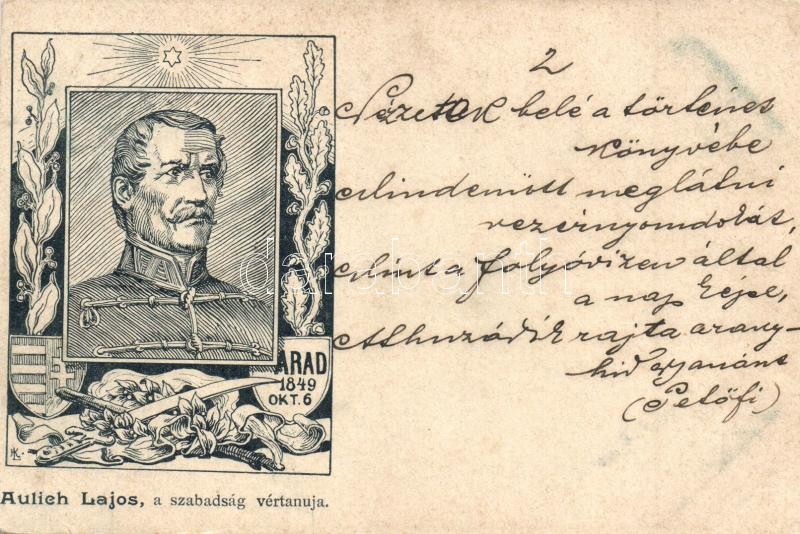 2
Nézetek belé a történet
könyvébe
Mindenütt meglátni
vezérnyomdokát,
Mint a folyóvizen által
a nap képe,
Áthuzódik rajta arany-
hid gyanánt
(Petőfi)
ARAD
1849
OKT. 6
Aulich Lajos, a szabadság vértanuja.
darabanth